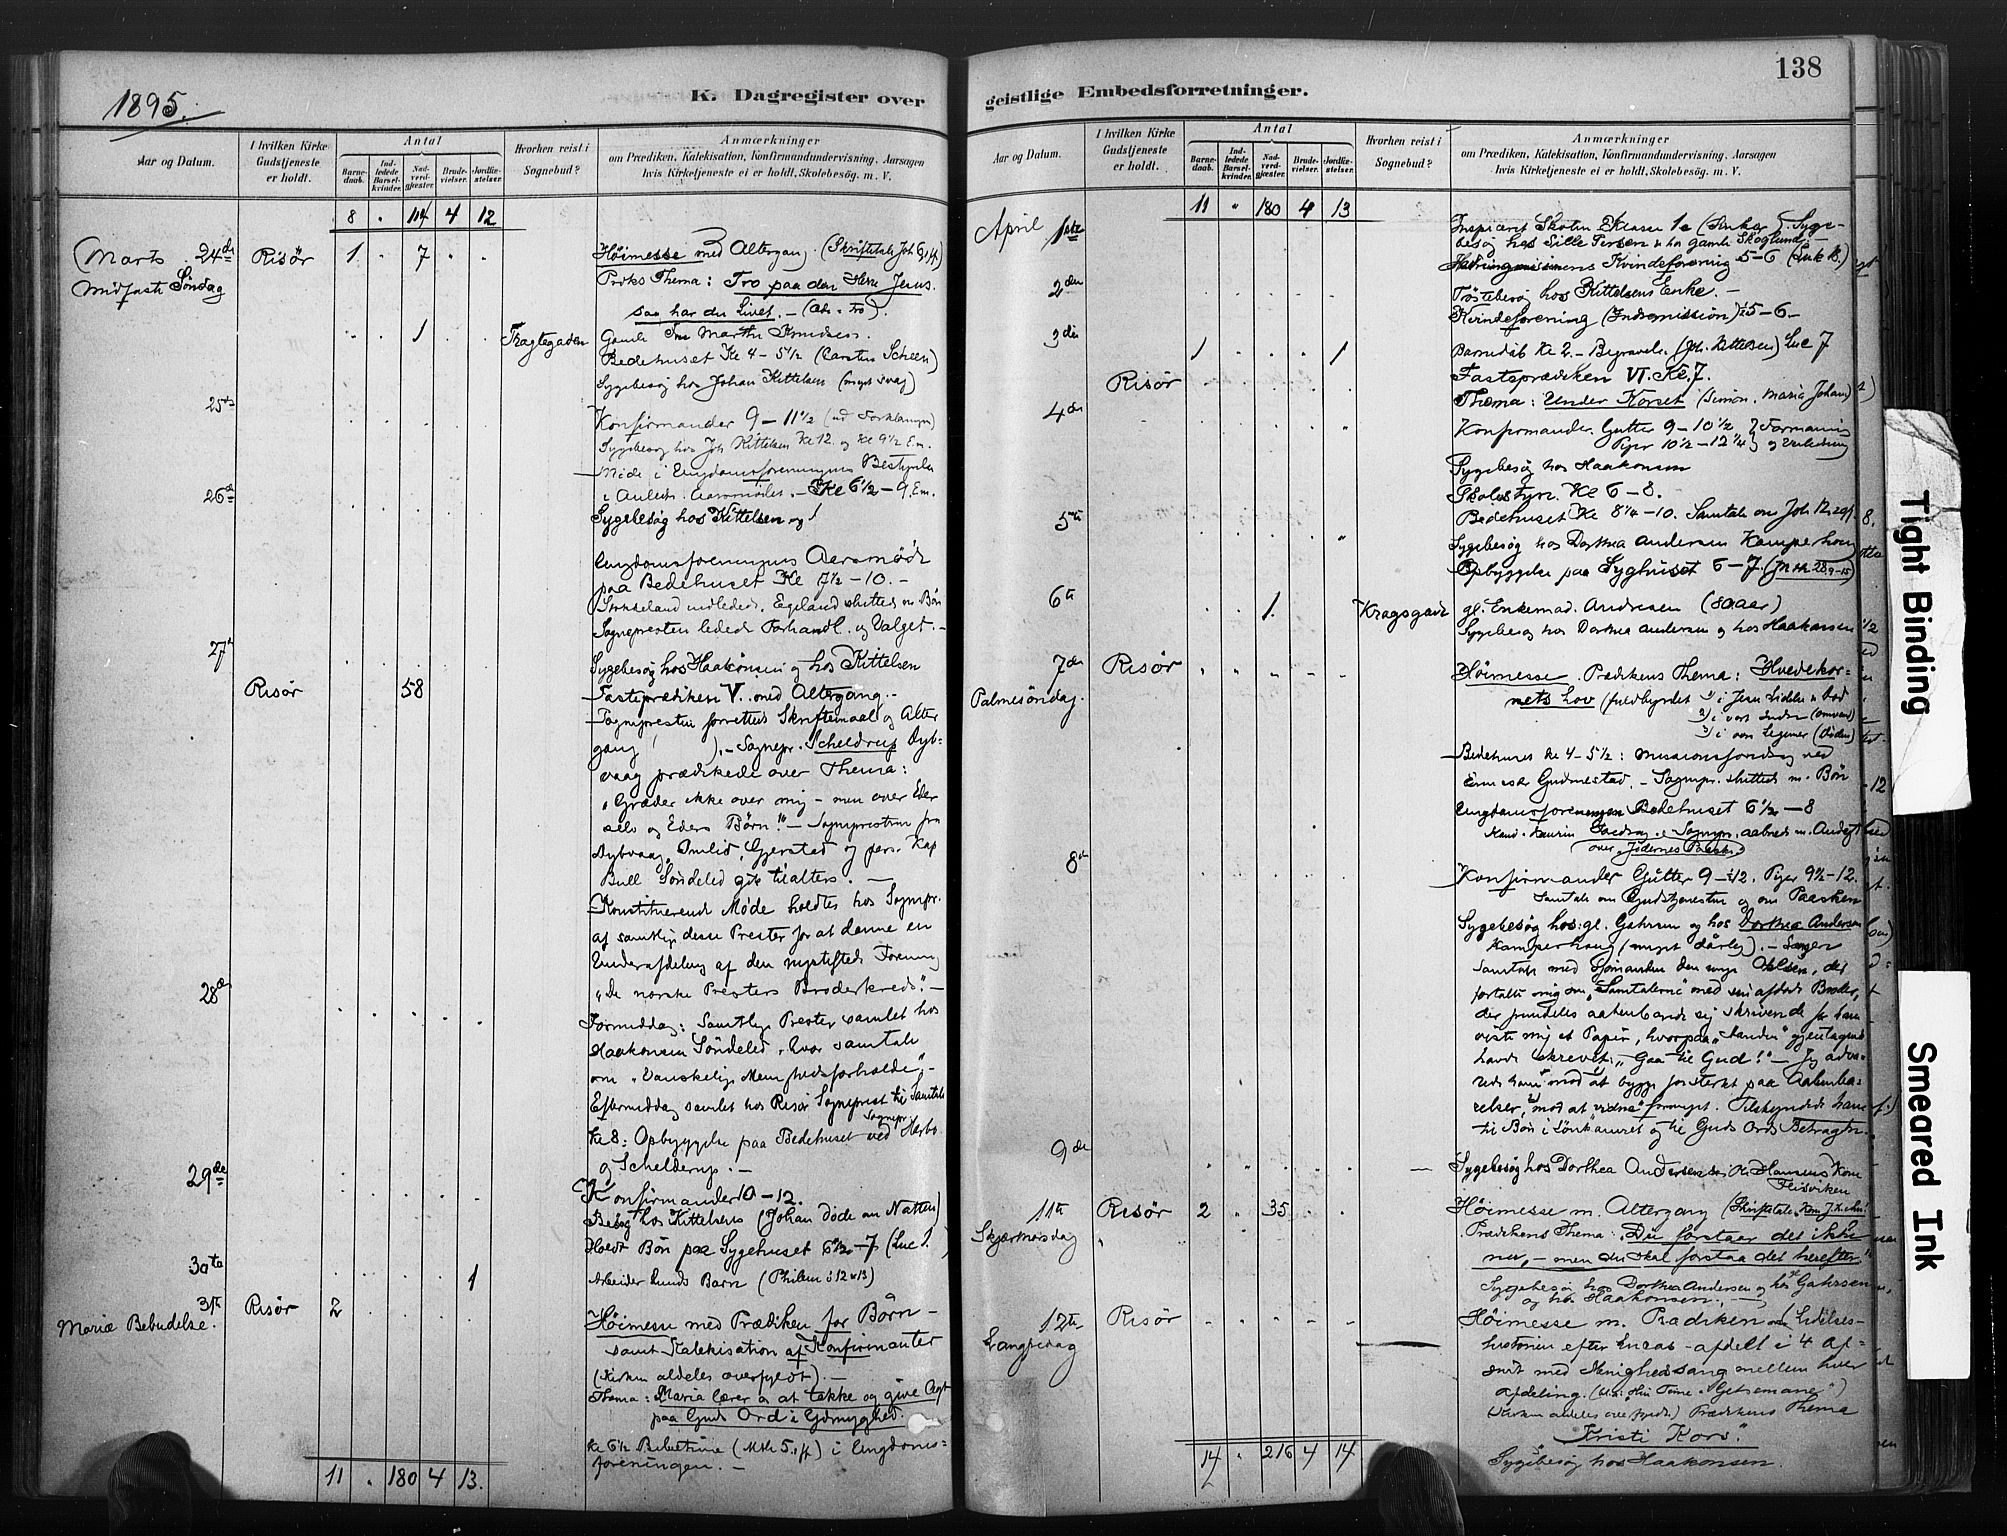 1895.
K. Dagregister over
Aar og Datum.
I hvilken Kirke Gudstjeneste er holdt.
Antal
Barnedaab.
Indledede Barselkvinder.
Nadverdgjæster.
Brudevielser.
Jordfæstelser.
Hvorhen reist i Sognebud?
Anmærkninger
om Prædiken, Katekisation, Konfirmandundervisning, Aarsagen
hvis Kirketjeneste ei er holdt, Skolebesøg. m. V.
8 " 114 4 12
Marts 24de Risør 1 . 7 . . Høimesse med Altergang (Skriftetale Joh 6,1ff)
Midfaste Søndag Thema: Tro paa den Herre Jesus.
saa har du Livet. –
1 Tragtegaden Gamle Marthe Knudsen.
Bedehuset Ke 4 – 5½ (Carsten Scheen)
Sygebesøg hos Johan Kittelsen (meget svag)
25de Konfirmander 9 – 11½
Sygebesøg hos Joh Kittelsen Kl 12. og Kl 9½ Em.
Møde i Ungdomsforeningens Bestyrelse
26de i Anledn. Aarsmødet. – Kl 6½ – 9. Em.
Sygebesøg hos Kittelsen
Ungdomsforeningens Aarsmøde
paa Bedehuset Kl 7½ – 10. –
indledede. Egeland sluttede m Bøn
Sognepresten ledede Forhandl. og Valget. –
27de Sygebesøg hos Haakonsen og hos Kittelsen
Risør 58 Fasteprædiken V. med Altergang. –
Sognepresten forrettede Skriftemaal og Alter
gang ( ). – Sognepr. Schelderup Dyb-
vaag prædikede over Thema:
"Græder ikke over mig – men over Eder
selv og Eders Børn!" – Sognepresterne fra
Dybvaag, Omlid, Gjerstad og pers. Kap
Bull Søndeled gik tilalters. –
Konstituerende Møde holdtes hos Sognepr.
af samtlige disse Prester for at danne en
Underafdeling af den nystiftede Forening
28de "De norske Presters Broderkreds". –
Formiddag: Samtlige Prester samlet hos
Haakonsen Søndeled, hvor samtale
om "Vanskelige Menighedsforholde". –
Eftermiddag samlet hos Risør Sogneprest til Samtale
Kl 8: Opbyggelse paa Bedehuset ved Sognepr.
29de og Schelderup. –
Konfirmander 10 – 12.
Besøg hos Kittelsens (Johan døde om Natten)
Holdt Bøn paa Sygehuset 6½ – 7 (Luc
30te 1 Arbeider Lunds Barn
31te Risør 2 Høimesse med Prædiken for Børn –
Mariæ Bebudelse. samt Katekisation af Konfirmanter
(Kirken aldeles overfyldt). –
Thema: Maria lærer os at takke og give Agt
paa Guds Ord i Ydmyghed.
Kl 6½ Bibeltime (Mth 5,1ff) i Ungdoms-
foreningen. –
11 " 180 4 13.
138
geistlige Embedsforretninger.
Aar og Datum.
I hvilken Kirke Gudstjeneste er holdt.
Antal
Barnedaab.
Indledede Barselkvinder.
Nadverdgjæster.
Brudevielser.
Jordfæstelser.
Hvorhen reist i Sognebud?
Anmærkninger
om Prædiken, Katekisation, Konfirmandundervisning, Aarsagen
hvis Kirketjeneste ei er holdt, Skolebesøg. m. V.
11 " 180 4 13
April 1ste Syge-
besøg hos Lille Persen & hos gamle Skoglund. –
Kvindeforening 5–6
2den Trøstebesøg hos Kittelsens Enke. –
Kvindeforening (Indremission) 5 – 6 –
3die 1 . . . 1 Barnedåb Kl 2. – Begravels. (Joh. Kittelsen) Luc 7
Risør Fasteprædiken VI. Kl. 7.
Thema: Under Korset (Simon, Maria Johan)
4de Konfirmander. Gutter 9 – 10½
Piger 10½ – 12¼
Sygebesøg hos Haakonsen
Skolestyre. Kl 6 – 8.
5te Bedehuset Kl 8¼ – 10. Samtale om Joh 12,
Sygebesøg hos Dorthea Andersen Kamperhoug
Opbyggelse paa Syghuset 6 – 7. (Mtth 28,9–15)
6te 1. Kragsgade gl. Enkemad. Andresen (80 aar)
Sygebesøg hos Dorthea Andersen og hos Haakonsen
7de Risør Høimesse. Prædikens Thema: Hvedekor-
Palmesøndag. nets Lov (fuldbyrdet 1) i Jesu Lidelse og Død
2) i vort Indre (omvend)
3) i vore Legemer (Døden)
Bedehuset Kl 4 – 5½: Missionsforedrag ved
Gudmestad. – Sognepr. sluttede m. Bøn
Ungdomsforeningen Bedehuset 6½ – 8
Foredrag. Sognepr. aabned m. Andagt
over "Jødernes Paaske"
8de Konfirmander Gutter 9 – 12. Piger 9½ – 12.
Samtale om Gudstjenesten og om Paasken
Sygebesøg hos: gl. Gahrsen og hos Dorthea Andersen
Kamperhaug (meget dårlig). –
samtale med Sjømanden den unge Olsen, der
fortalte mig om "Samtalerne" med sin afdøde Broder,
der fremdeles aabenbarede sig skrivende for ham
viste mig et Papir, hvorpaa "Aanden" gjentagende
havde skrevet: "Gaa til Gud!" – Jeg adva-
rede ham mod at bygge for sterkt paa Aabenba-
relser, mod at "vidne" formeget. Tilskyndede ham
til Bøn i Lønkamret og til Guds Ords Betragtn.
9de Sygebesøg hos Dorthea Andersen & Hansens Kone
Flisviken
11te Risør 2 " 35 . . Høimesse m. Altergang
Skjærtorsdag Prædikens Thema: "Du forstaaer det ikke
nu, – men du skal forstaa det herefter."
Sygebesøg hos Dorthea Andersen og hos Gahrsen
og hos Haakonsen. –
12te Risør Høimesse m. Prædiken over Lidelses-
Langfredag historien efter Lucas – afdelt i 4 Af-
snit med Menighedssang mellem hver
Afdeling.
(Kirken aldeles overfyldt) Prædikens Thema
"Kristi Kors."
Sygebesøg hos Haakonsen.
14 " 216 4 14
Tight Binding
Smeared Ink